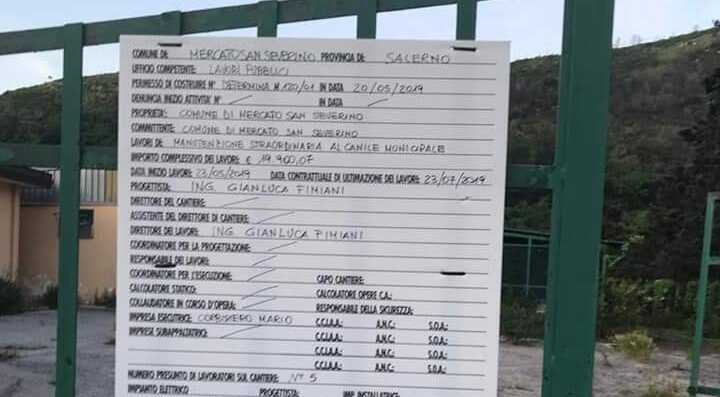 COMUNE DI: MERCATO SAN SEVERINO PROVINCIA DI: SALERNO
UFFICIO COMPETENTE: LAVORI PUBBLICI
PERMESSO DI COSTRUIRE N° DETERMINA N. 120/01 IN DATA 20/05/2019
DENUNCIA INIZIO ATTIVITA' N° / IN DATA /
PROPRIETÀ: COMUNE DI MERCATO SAN SEVERINO
COMMITTENTE: COMUNE DI MERCATO SAN SEVERINO
LAVORI DI: MANUTENZIONE STRAORDINARIA AL CANILE MUNICIPALE
IMPORTO COMPLESSIVO DEI LAVORI: € 19.900,07
DATA INIZIO LAVORI: 23/05/2019 DATA CONTRATTUALE DI ULTIMAZIONE DEI LAVORI: 23/07/2019
PROGETTISTA: ING. GIANLUCA FIMIANI
DIRETTORE DEL CANTIERE: /
ASSISTENTE DEL DIRETTORE DI CANTIERE: /
DIRETTORE DEI LAVORI: ING. GIANLUCA FIMIANI
COORDINATORE PER LA PROGETTAZIONE: /
RESPONSABILE DEI LAVORI: /
COORDINATORE PER L'ESECUZIONE: / CAPO CANTIERE:
CALCOLATORE STATICO: / CALCOLATORE OPERE C.A.:
COLLAUDATORE IN CORSO D'OPERA: / RESPONSABILE DELLA SICUREZZA:
IMPRESA ESECUTRICE: MARIO C.C.I.A.A.: A.N.C.: S.O.A.:
IMPRESE SUBAPPALTATRICI: / C.C.I.A.A.: A.N.C.: S.O.A.:
C.C.I.A.A.: A.N.C.: S.O.A.:
C.C.I.A.A.: A.N.C.: S.O.A.:
NUMERO PRESUNTO DI LAVORATORI SUL CANTIERE: N° 5
IMPIANTO ELETTRICO PROGETTISTA: IMP. INSTALLATRICE: